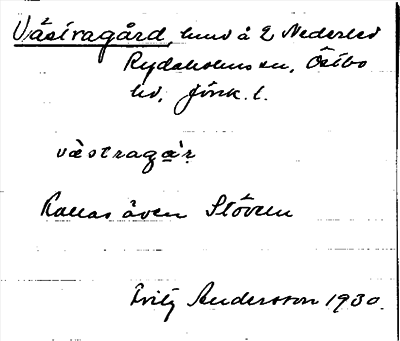 Västragård, hmd å 2 Nederled
Rydaholms sn, Östbo
hd, Jönk. l.
västragå̱ṛ
Kallas även Stövlen
Fritz Andersson 1930.